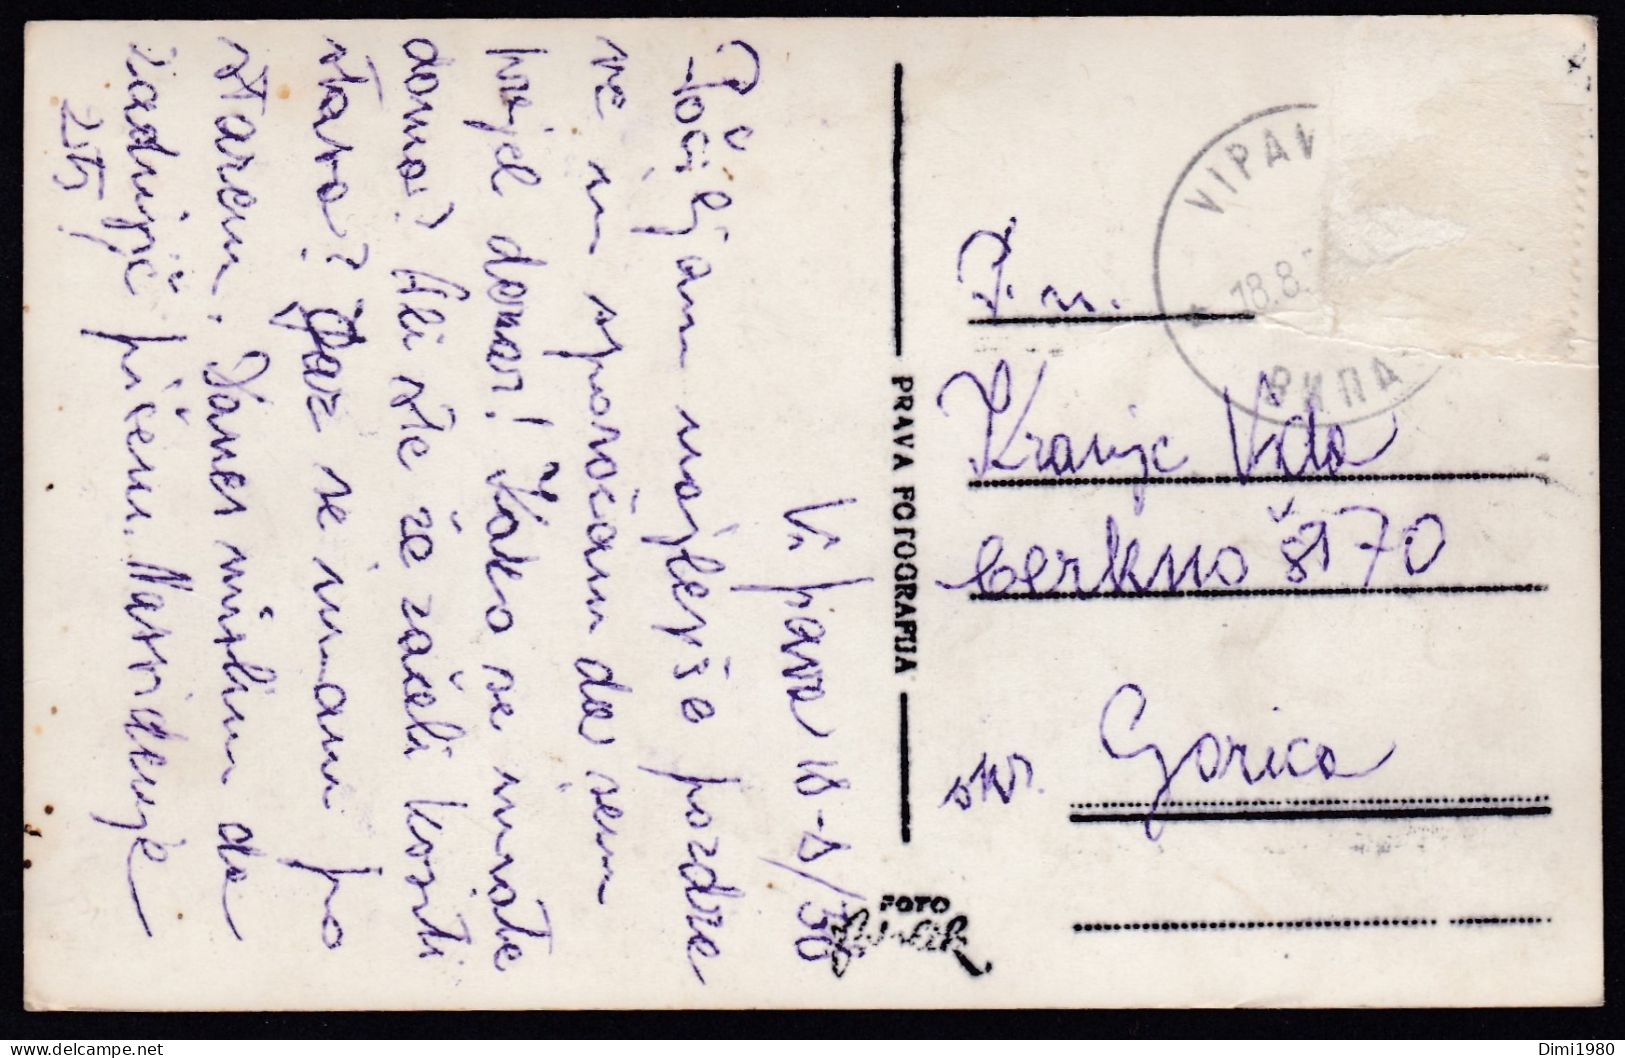 Vipava 18-8/50
Pošiljam najlepše pozdra
ve in sporočam da sem
prejel denar! Kako se imate
doma? Ali ste že začeli kositi
otavo? Jaz se imam po
starem. Danes mislim da
zadnjič pišem. Nasvidenje
PRAVA FOTOGRAFIJA
FOTO
VIPAV
18.8.
ВИПА
T. n.
Kranjc Vida
Cerkno št 70
okr. Gorica
Dimi1980